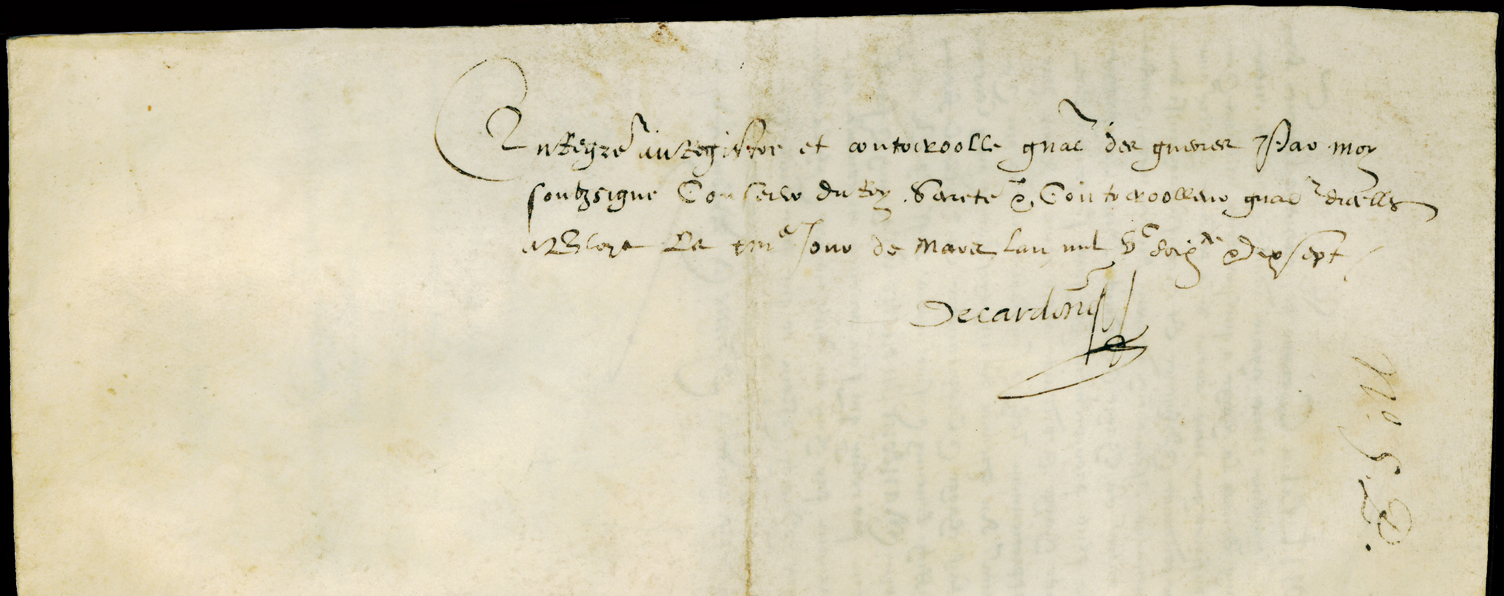 Enregre au Registre et controolle gnal des guerres Par moy
soubzsigne Conseiller du Roy Secrete & Controolleur gnal dicelles
A Bloys Le me Jour de Mars Lan mil Vc soixte & dix sept
Decardonne